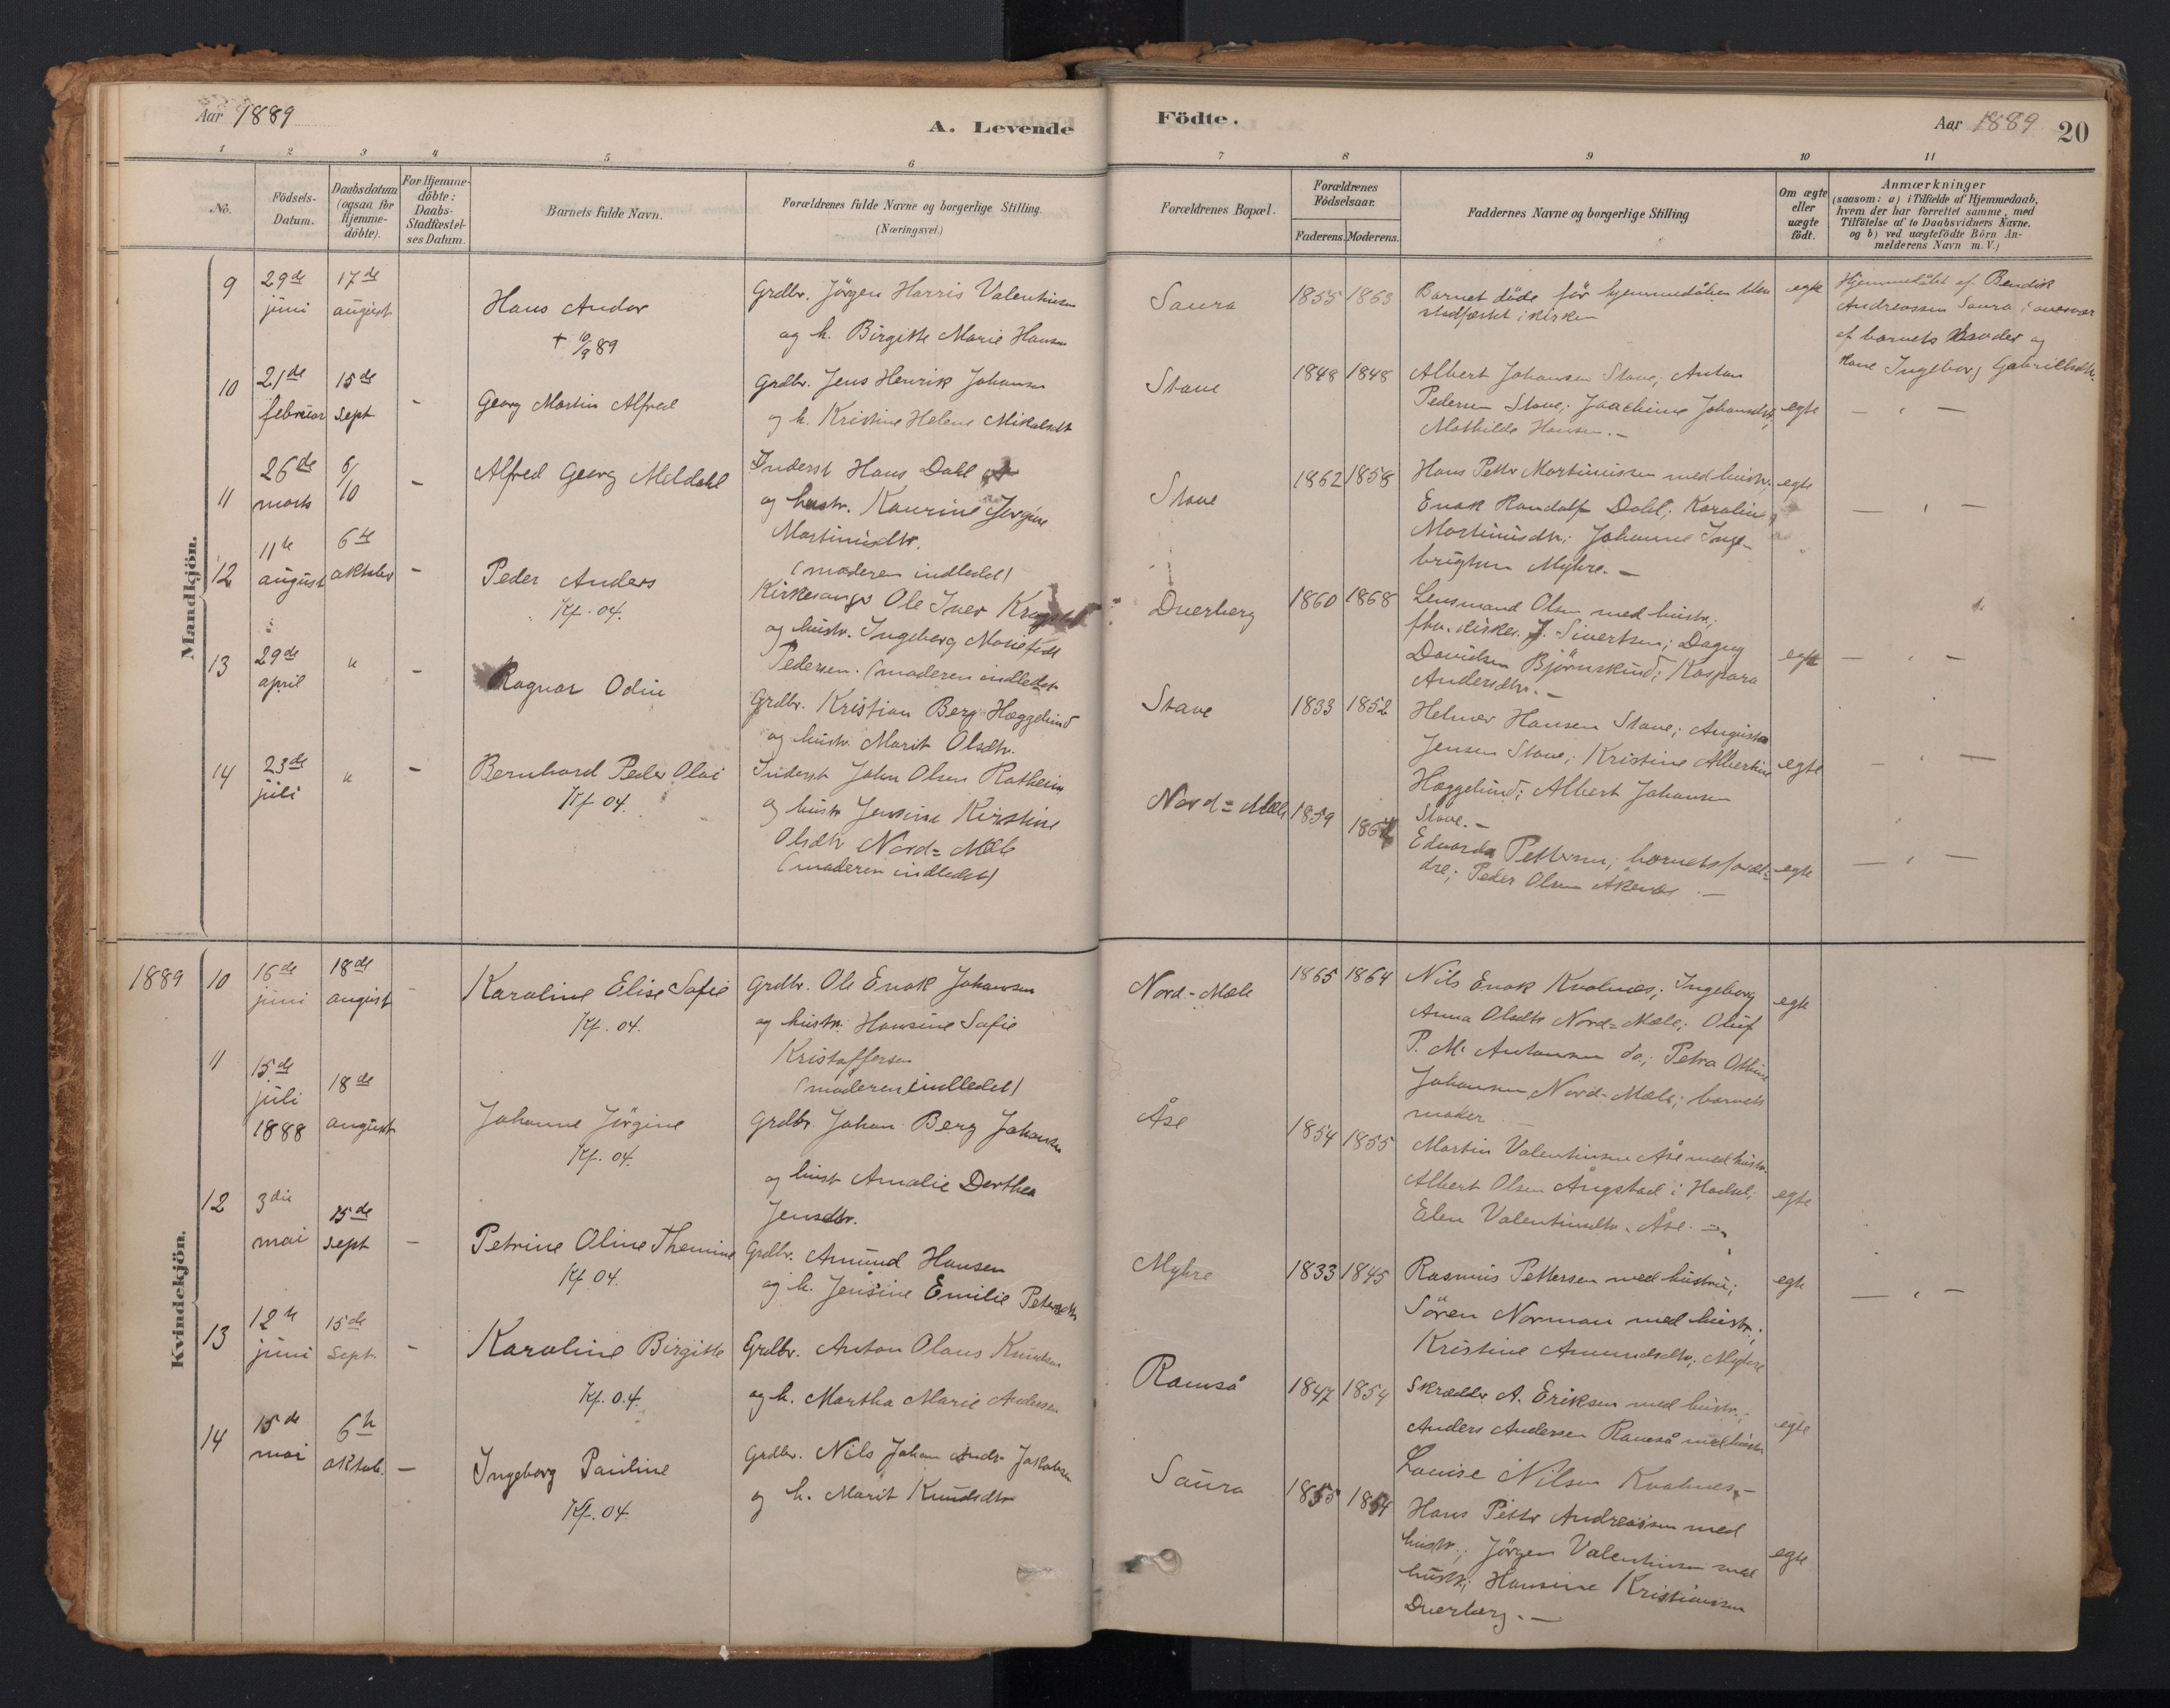 Aar 1889
A. Levende
Födte.
Aar 1889
20
1 2 3 4 5 6 7 8 9 10 11
No.
Födsels-
Datum.
Daabsdatum
(ogsaa for
Hjemme-
döbte).
For Hjemme-
döbte:
Daabs-
Stadfæstel-
ses Datum.
Barnets fulde Navn.
Forældrenes fulde Navne og borgerlige Stilling.
(Næringsvei.)
Forældrenes Bopæl.
Forældrenes
Födselsaar.
Faderens. Moderens.
Faddernes Navne og borgerlige Stilling
Om ægte
eller
uægte
födt.
Anmærkninger
(saasom: a) i Tilfælde af Hjemmedaab,
hvem der har forrettet samme, med
Tilföielse af to Daabsvidners Navne.
og b) ved uægtefödte Börn An-
melderens Navn m. V.)
Mandkjön.
9
29de
juni
17de
august
Hans Andor
+ 10/9 89
Grdbr. Jörgen Harris Valentinsen
og h. Birgitte Marie Hansen
Saura
1855 1863
Barnet döde för hjemmedåben blev
stadfæstet i kirken
egte
Hjemmedöbt af Bendik
Andreassen Saura i overvær
af barnets fader og
kone Ingeborg Gabrielsdtr.
10
21de
februar
15de
sept
-
Georg Martin Alfred
Grdbr. Jens Henrik Johansen
og h. Kristine Helene Mikalsdt
Stave
1848 1848
Albert Johansen Stave; Anton
Pedersen Stave; Joachime Johansdtr,
Mathilde Hansen. -
egte
- " -
11
26de
marts
6/10
-
Alfred Georg Meldahl
Inderst Hans Dahl
og hustr. Kaurine Jörgine
Martinisdtr.
(moderen indledet)
Stave
1862 1858
Hans Petter Martinissen med hustr;
Enok Randolf Dahl; Karoline
Martinisdtr; Johanne Inge-
brigtsen Myhre. -
egte
- " -
12
11te
august
6te
oktober
-
Peder Anders
Kf. 04.
Kirkesanger Ole Iver
og hustr. Ingeborg Marie födt
Pedersen. (moderen indledet
Dverberg
1860 1868
Lensmand Olsen med hustr;
fhv. kirkes. J. Sivertsen; Dagny
Davidsen Björnskind; Kaspara
Andersdtr. -
egte
- " -
13
29de
april
"
-
Ragnar Odin
Grdbr. Kristian Berg Hæggelund
og hustr. Marit Olsdtr.
Stave
1833 1852
Helmer Hansen Stave; Augusta
Jensen Stave; Kristine Albertine
Hæggelund; Albert Johansen
Stave. -
egte
- " -
14
23de
juli
"
-
Bernhard Peder Olai
Kf 04.
Inderst John Olsen Ratheim
og hustr Jensine Kirstine
Olsdtr Nord=Mæle
(moderen indledet)
Nord=Mæle
1859
Eduarda Pettersen; barnets foræl=
dre; Peder Olsen Åknes. -
egte
- " -
1889
Kvindekjön.
10
16de
juni
18de
august
-
Karoline Elise Sofie
Kf. 04.
Grdbr. Ole Enok Johansen
og hustr. Hansine Sofie
Kristoffersen
(moderen indledet)
Nord-Mæle
1865 1864
Nils Enok Kvalnes; Ingeborg
Anna Olsdtr Nord=Mæle; Oluf
P. M. Antonsen do.; Petra Othine
Johansen Nord-Mæle; barnets
moder. -
egte
11
15de
juli
1888
18de
august
Johanne Jörgine
Kf. 04.
Grdbr. Johan Berg Johansen
og hust Amalie Dorthea
Jensdtr.
Åse
1854 1855
Martin Valentinsen Åse med hustr.
Albert Olsen Ångstad i Hadsel;
Elen Valentinsdtr. Åse. -
egte
12
3die
mai
15de
sept
-
Petrine Oline Themine
Kf 04.
Grdbr. Amund Hansen
og h. Jensine Emilie Petersdtr
Myhre
1833 1845
Rasmus Pettersen med hustru;
Sören Norman med hustr.;
Kristine Amundsdtr. Myhre
egte
- " -
13
12te
juni
15de
sept.
-
Karoline Birgitte
Kf. 04.
Grdbr. Anton Olaus Knudsen
og h. Martha Marie Andersen
Ramså
1847 1854
Skrædder A. Eriksen med hustr.;
Anders Andersen Ramså med hustr
Louise Nilsen Kvalnes. -
egte
14
15de
mai
6te
oktob.
-
Ingeborg Pauline
Kf. 04.
Grdbr. Nils Johan Andr. Jakobsen
og h. Marit Knudsdtr
Saura
1855 1854
Hans Petter Andreassen med
hustr.; Jörgen Valentinsen med
hustr; Hansine Kristiansen
Dverberg. -
egte